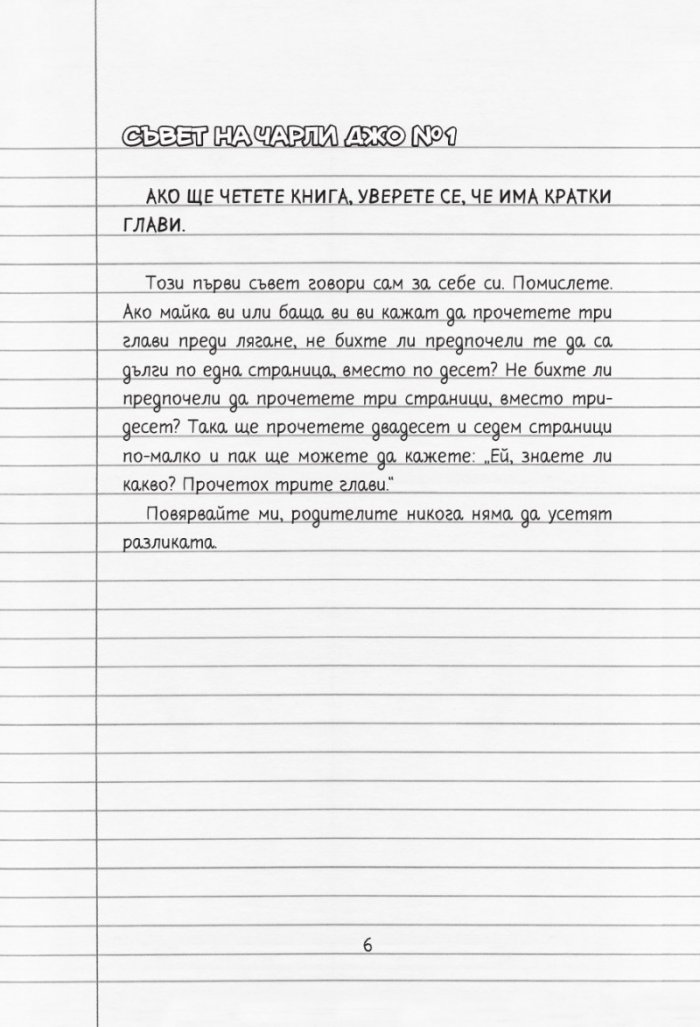 СЪВЕТ НА ЧАРЛИ ДЖО №1
АКО ЩЕ ЧЕТЕТЕ КНИГА, УВЕРЕТЕ СЕ, ЧЕ ИМА КРАТКИ
ГЛАВИ.
Този първи съвет говори сам за себе си. Помислете.
Ако майка ви или баща ви ви кажат да прочетете три
глави преди лягане, не бихте ли предпочели те да са
дълги по една страница, вместо по десет? Не бихте ли
предпочели да прочетете три страници, вместо три-
десет? Така ще прочетете двадесет и седем страници
по-малко и пак ще можете да кажете: „Ей, знаете ли
какво? Прочетох трите глави.“
Повярвайте ми, родителите никога няма да усетят
разликата.
6